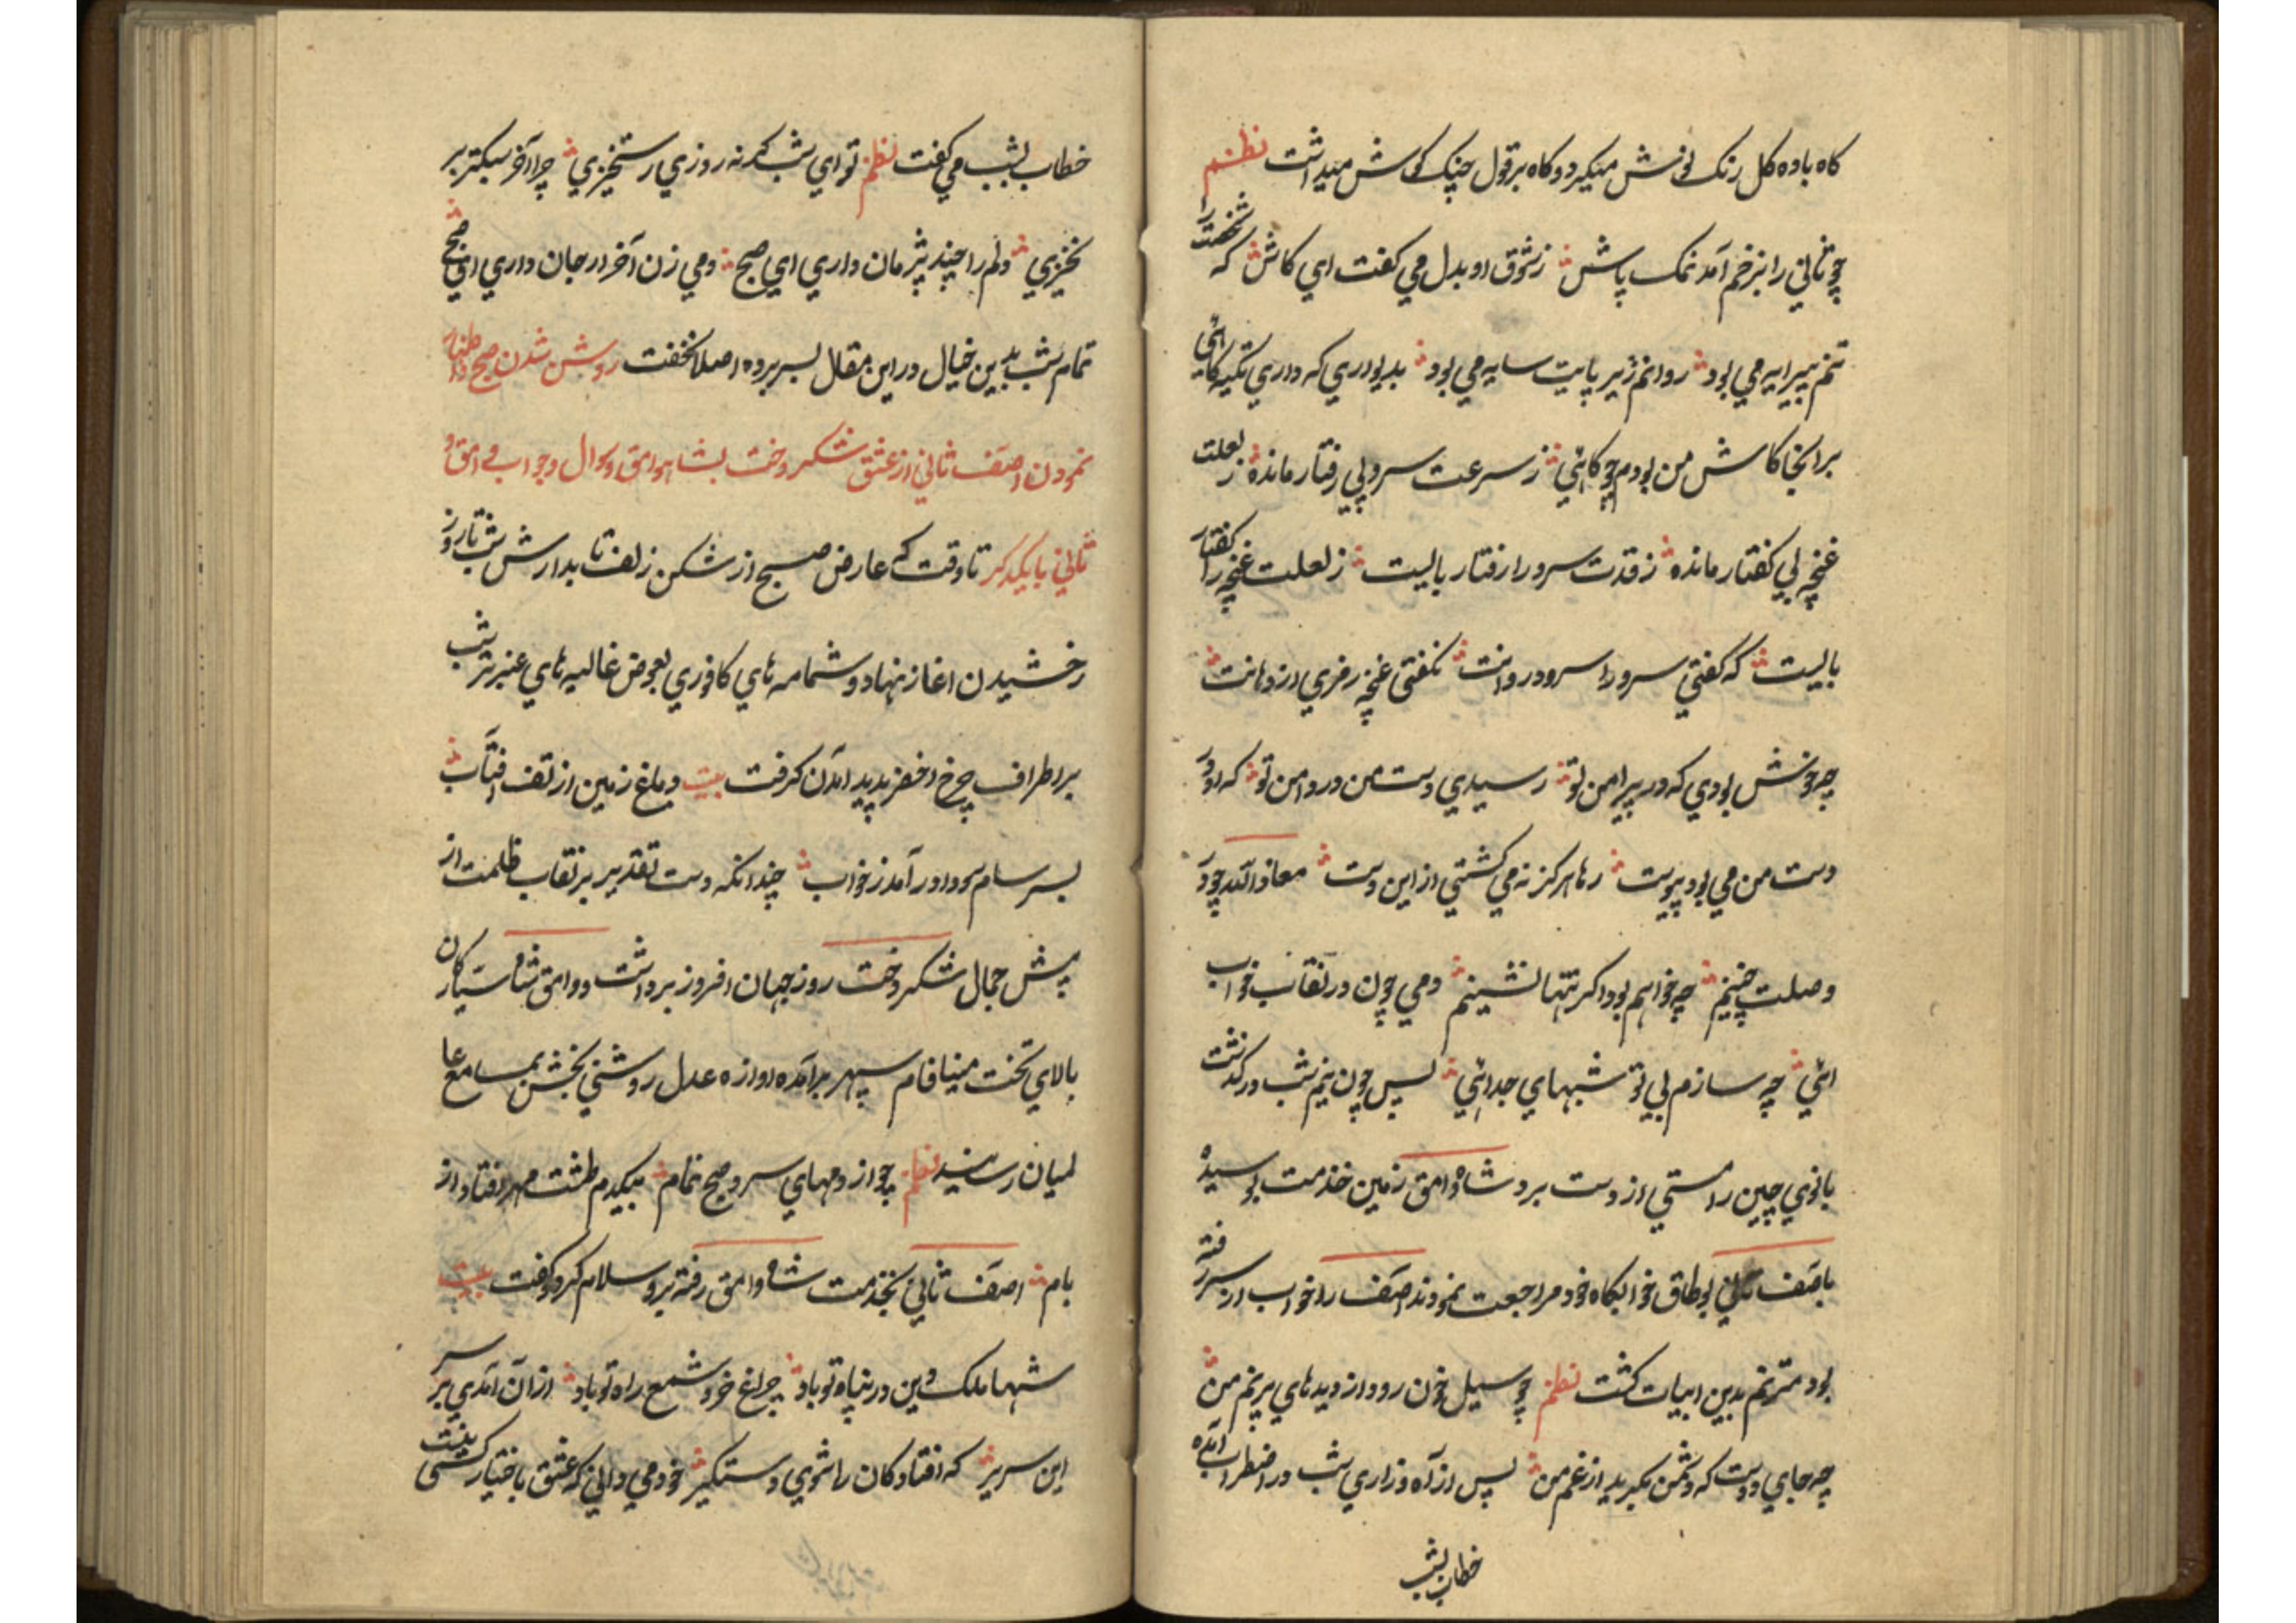 کاه باده کل رنک نوش میکرد و کاه بر قول چنک کوش میداشت نظم
چو ثانی را بزخم آمد نمک پاش زشوق او بدل می کفت ای کاش که شخصت را
تنم پیرایه می بود روانم زیر پایت سایه می بود بدیواری که داری تکیه کائی
برانجا کاش من بودم چو کاهی ز سرعت سرو بی رفتار مانده ز لعلت
غنچه بی کفتار مانده ز قدت سرو را رفتار بایست ز لعلت غنچه را کفتار
بایست که کفتی سرو را سرو روانت نکفتی غنچه رمزی از دهانت
چه خوش بودی که در پیرامن تو رسیدی دست من در دامن تو که از
دست من می بود پیوست رها هرکز نه می کشتی از این دست معاذ الله چو در
وصلت چنینم چه خواهم بود اکر تنها نشینم دمی چون در نقاب خواب
ائی چه سازم بی تو شبهای جدائی پس چون نیم شب در کذشت
بانوی چین را مستی از دست برد شاه وامق زمین خدمت بوسیده
باصف ثانی بوطاق خوابکاه خود مراجعت نمودند اصف را خواب از سر رفته
بود مترنم بدین ابیات کشت نظم چو سیل خون رود از دیدهای پر نم من
چه جای دوست که دشمن بکرید از غم من پس از آه و زاری شب در اضطراب آمده
خطاب بشب
خطاب بشب می کفت نظم تو ای شب کر نه روزی رستخیزی چرا آخر سبکتر بر
نخیزی دلم را چند پژمان داری ای صبح دمی زن آخر ار جان داری ای صبح
تمام شب بدین خیال در این مقال بسر برده اصلا نخفت روشن شدن صبح و اظهار
نمودن اصف ثانی از عشق شکر دخت بشاه وامق و سوال و جواب وامق و
ثانی با یکدکر تا وقت که عارض صبح از شکن زلف تابدارش شب تا روز
رخشیدن اغاز نهاد و شمامه های کافوری بعوض غالیه های عنبر تر شب
بر اطراف چرخ اخضر پدید امدن کرفت بیت دماغ زمین از تف افتاب
بسرسام سودا در آمد ز خواب چندانکه دست تقدیر بر نقاب ظلمت از
پیش جمال شکر دخت روز جهان افروز برداشت و وامق شاه سیارکان
بالای تخت مینا فام سپهر برآمده اوازه عدل روشنی بخش بمسامع عا
لمیان رسانید نظم چو از دمهای سرد صبح نمام بیکدم طشت مهر افتاد از
بام اصف ثانی بخدمت شاه وامق رفته برو سلام کرد و کفت بیت
شها ملک و دین در پناه تو باد چراغ خرد شمع راه تو باد از آن آمدی بر سر
این سریر که افتادکان را شوی دستکیر خود می دانی که عشق باختیار کسی نیست